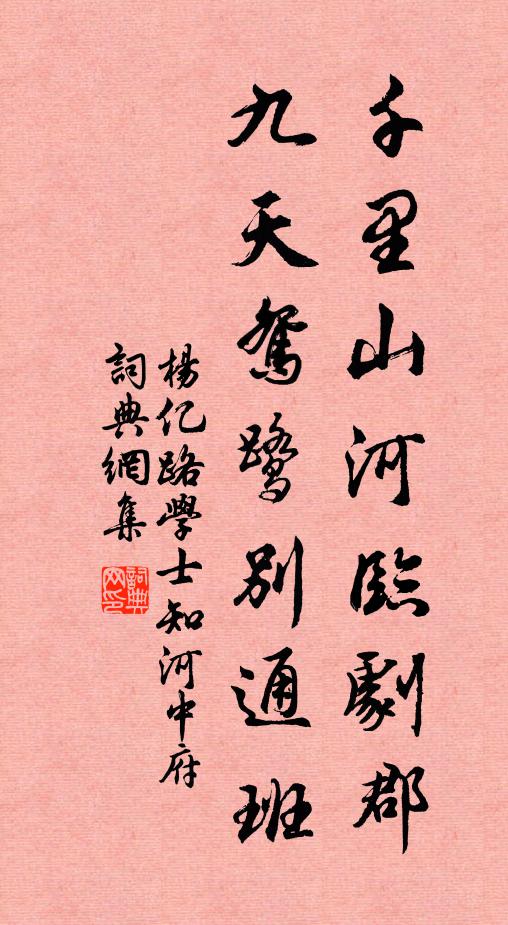 千里山河臨劇郡
九天鴛鷺別通班
楊亿路學士知河中府
詞典網集
詞典网印